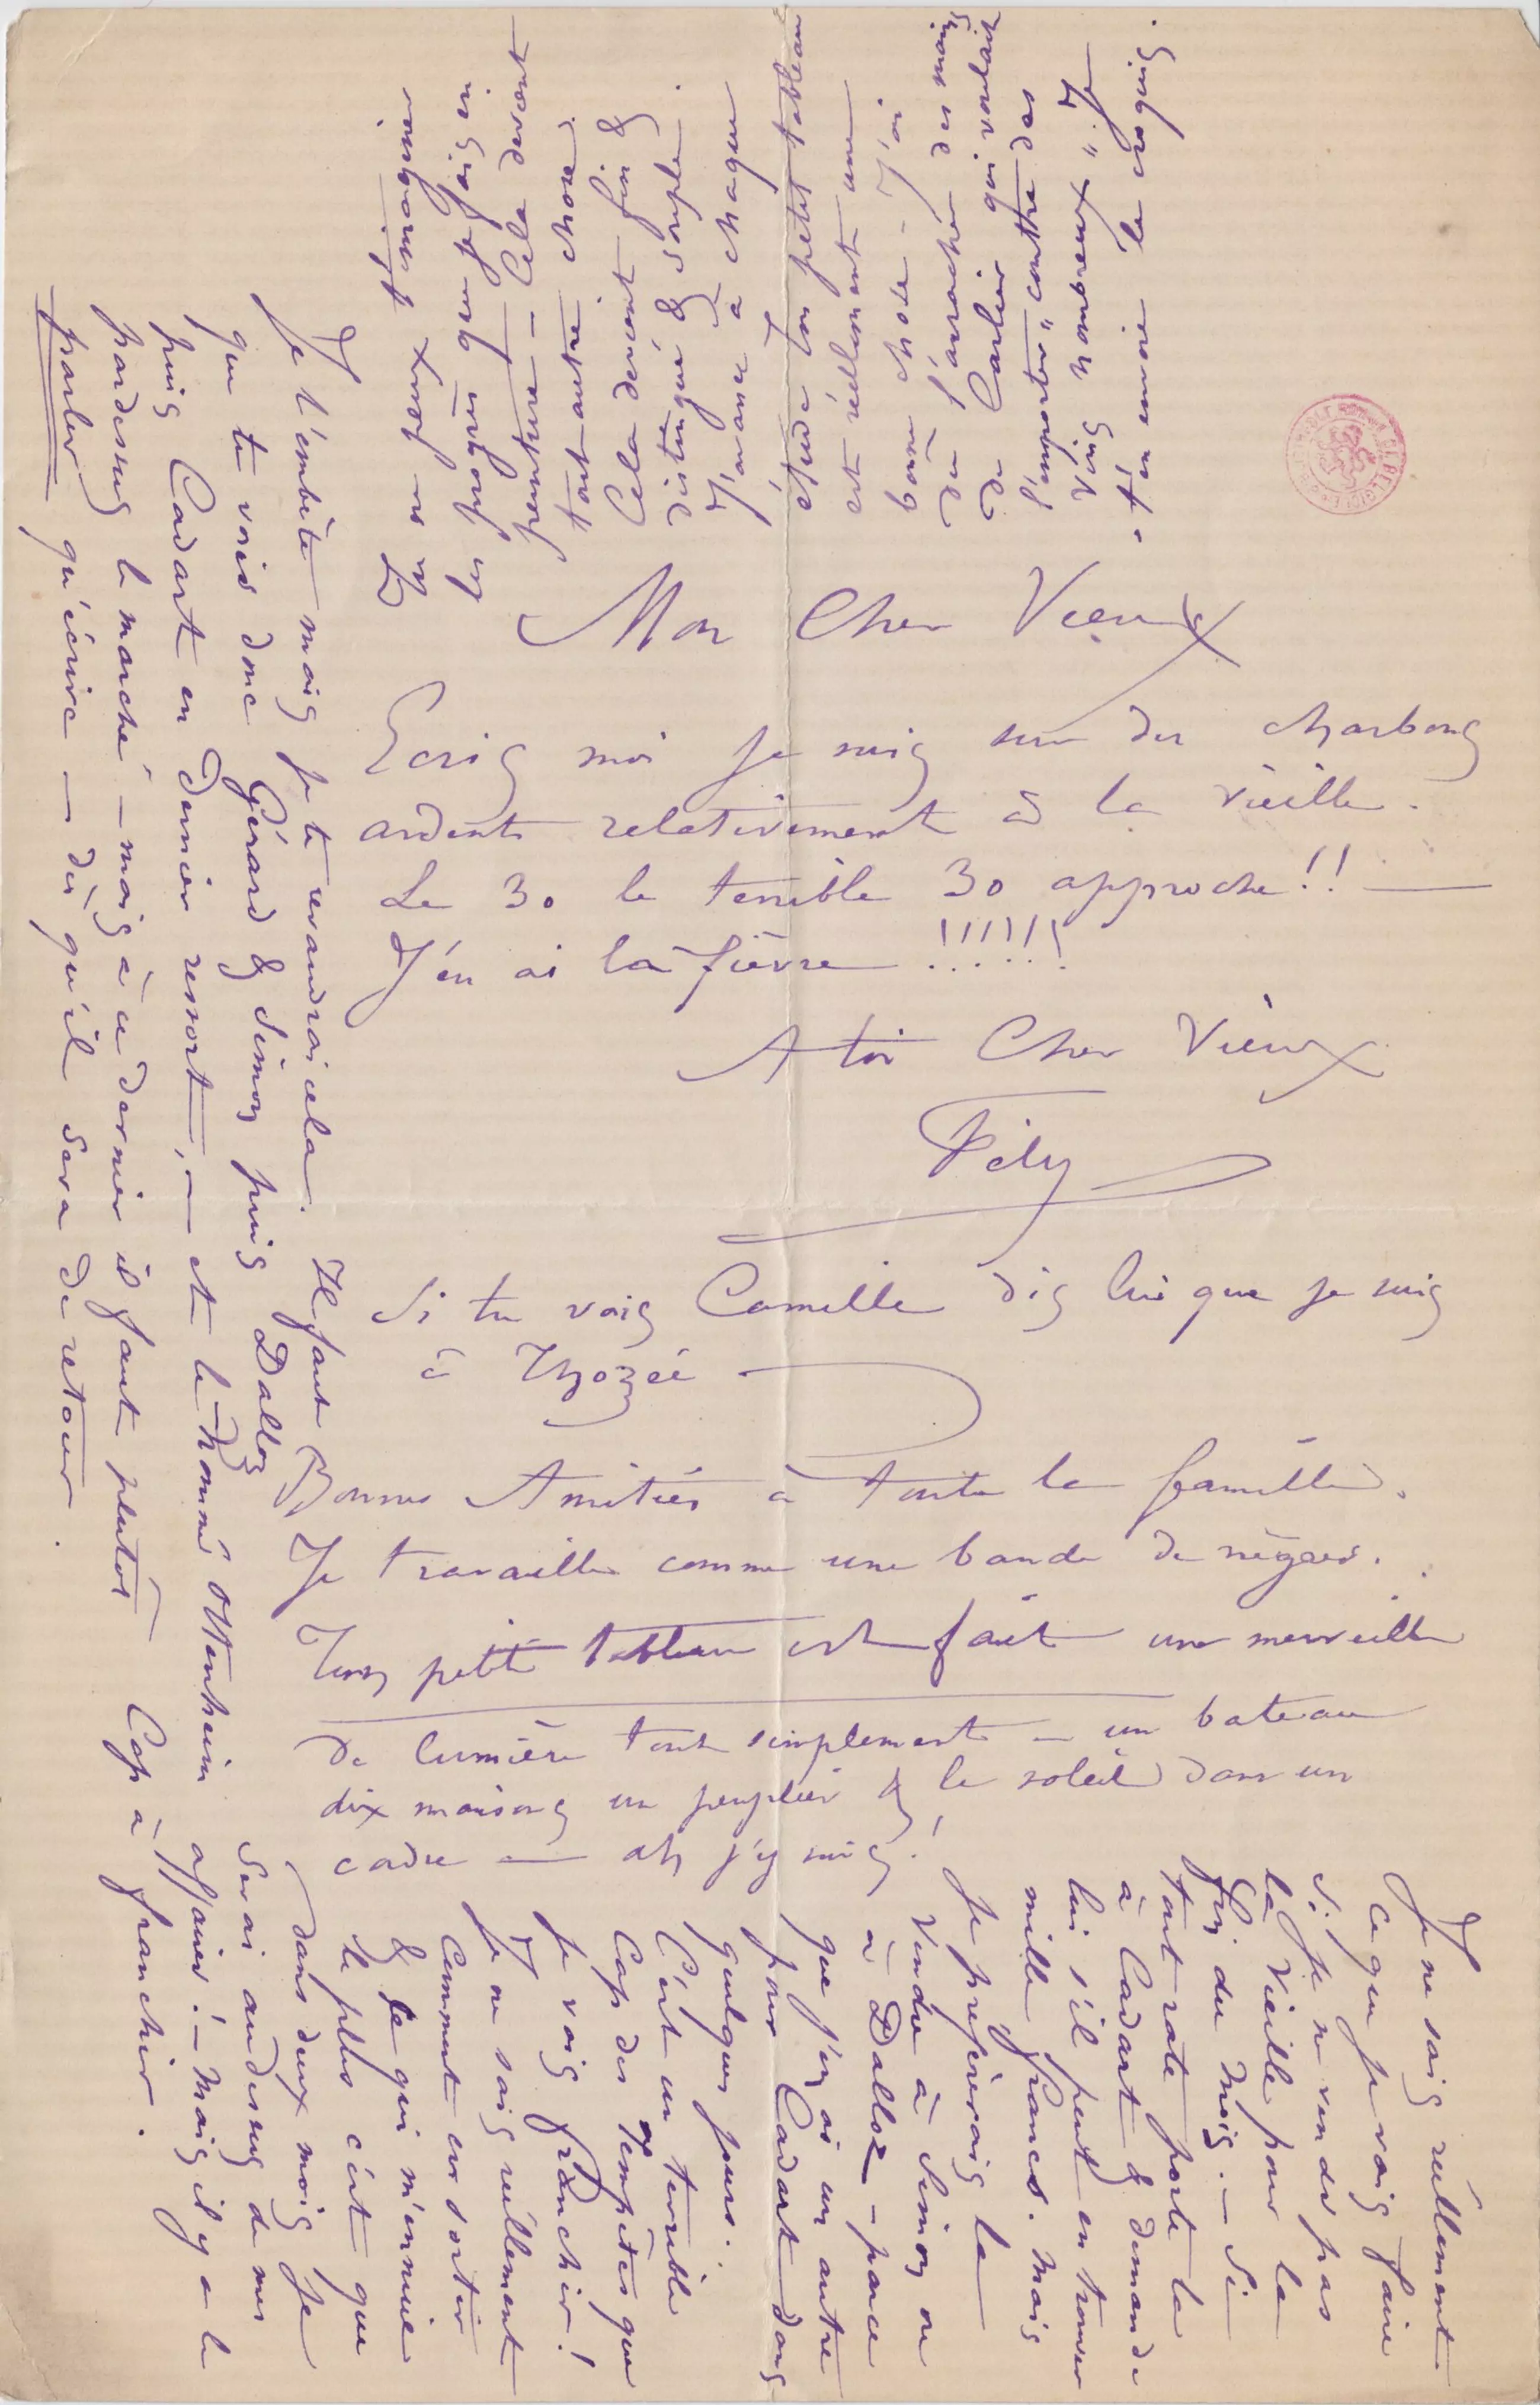 Mon Cher Vieux
Ecris moi je suis sur des charbons
ardents relativement à la vieille.
Le 30 le terrible 30 approche!!
J'en ai la fièvre !!!!!!
A toi Cher Vieux
Fély
Si tu vois Camille dis lui que je suis
à Thozée
Bonnes Amitiés à toute la famille.
Je travaille comme une bande de nègres.
Ton petit tableau est fait une merveille
de lumière tout simplement – un bateau
dix maisons un peuplier & le soleil dans un
cadre — ah j'y suis!
Je ne sais réellement
ce que je vais faire
si je ne vends pas
la Vieille pour la
fin du mois. – Si
tout rate porte la
à Cadart & demande
lui s'il peut en trouver
mille francs. Mais
je préfèrerais la
vendre à Simon ou
à Dalloz – parce
que j'en ai un autre
pour Cadart dans
quelques jours.
C'est un terrible
Cap des Tempêtes que
je vais franchir!
Je ne sais réellement
comment en sortir
& ce qui m'ennuie
le plus c'est que
dans deux mois je
serai au dessus de mes
affaires! – Mais il y a le
Cap à franchir.
Je t'embête mais je te revaudrai cela. Il faut
que tu voies donc Gérard & Simon puis Dalloz
puis Cadart en dernier ressort, – et le nommé Ottenheim
pardessus le marché – mais à ce dernier il faut plutôt
parler qu'écrire – dès qu'il sera de retour.
Tu ne peux t'imaginer
les progrès que je fais en
peinture – Cela devient
tout autre chose.
Cela devient fin &
distingué & souple.
J'avance à chaque
étude. Ton petit tableau
est réellement une
bonne chose – J'ai
dû l'arracher des mains
de Carlier qui voulait
l'emporter "contre des
vins nombreux". Je
t'en envoie le croquis.